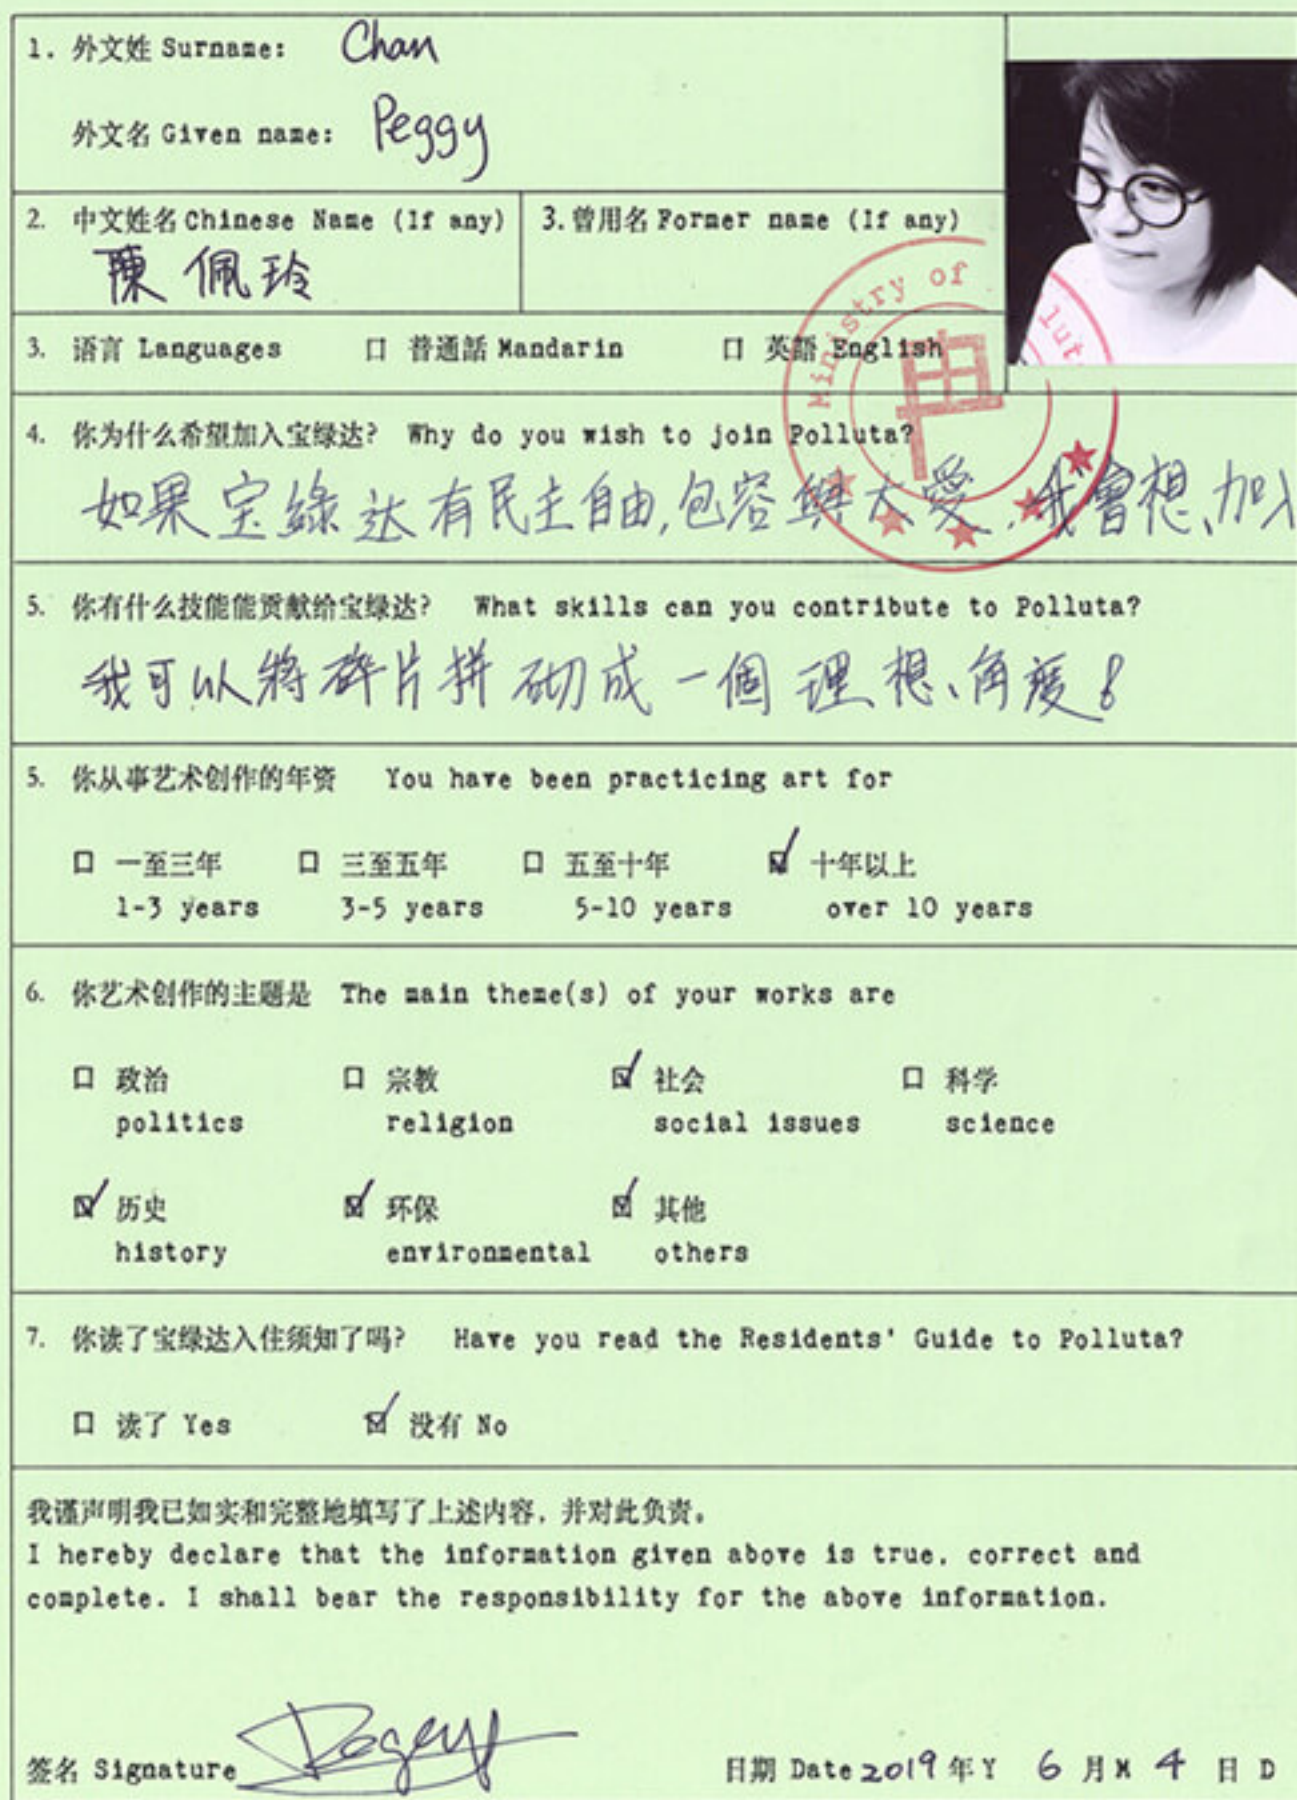 1. 外文姓 Surname: Chan
外文名 Given name: Peggy
2. 中文姓名 Chinese Name (If any)
陳佩玲
3. 曾用名 Former name (If any)
3. 语言 Languages 口 普通話 Mandarin 口 英語 English
Ministry of
lut
4. 你为什么希望加入宝绿达? Why do you wish to join Polluta?
如果宝綠达有民主自由,包容與大愛,我會想加入
5. 你有什么技能能贡献给宝绿达? What skills can you contribute to Polluta?
我可以將碎片拼砌成一個理想角度!
5. 你从事艺术创作的年资 You have been practicing art for
口 一至三年 口 三至五年 口 五至十年 ☑ 十年以上
1-3 years 3-5 years 5-10 years over 10 years
6. 你艺术创作的主题是 The main theme(s) of your works are
口 政治 口 宗教 ☑ 社会 口 科学
politics religion social issues science
☑ 历史 ☑ 环保 ☑ 其他
history environmental others
7. 你读了宝绿达入住须知了吗? Have you read the Residents' Guide to Polluta?
口 读了 Yes ☑ 没有 No
我谨声明我已如实和完整地填写了上述内容，并对此负责。
I hereby declare that the information given above is true, correct and
complete. I shall bear the responsibility for the above information.
签名 Signature Peggy 日期 Date 2019 年 Y 6 月 M 4 日 D